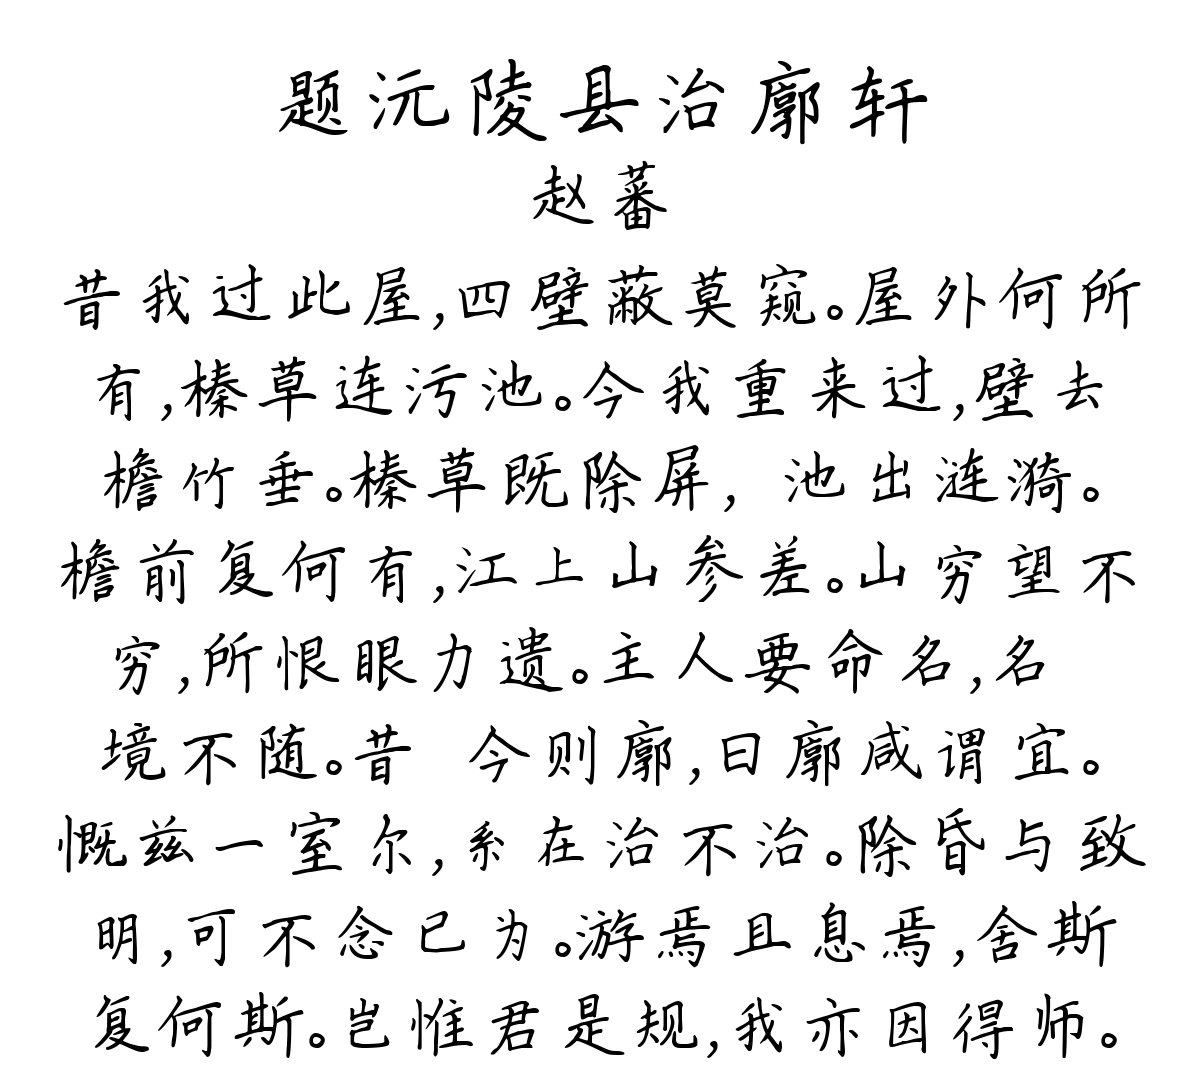 题沅陵县治廓轩
赵蕃
昔我过此屋,四壁蔽莫窥。屋外何所
有,榛草连污池。今我重来过,壁去
檐竹垂。榛草既除屏，池出涟漪。
檐前复何有,江上山参差。山穷望不
穷,所恨眼力遗。主人要命名,名
境不随。昔 今则廓,曰廓咸谓宜。
慨兹一室尔,系在治不治。除昏与致
明,可不念已为。游焉且息焉,舍斯
复何斯。岂惟君是规,我亦因得师。